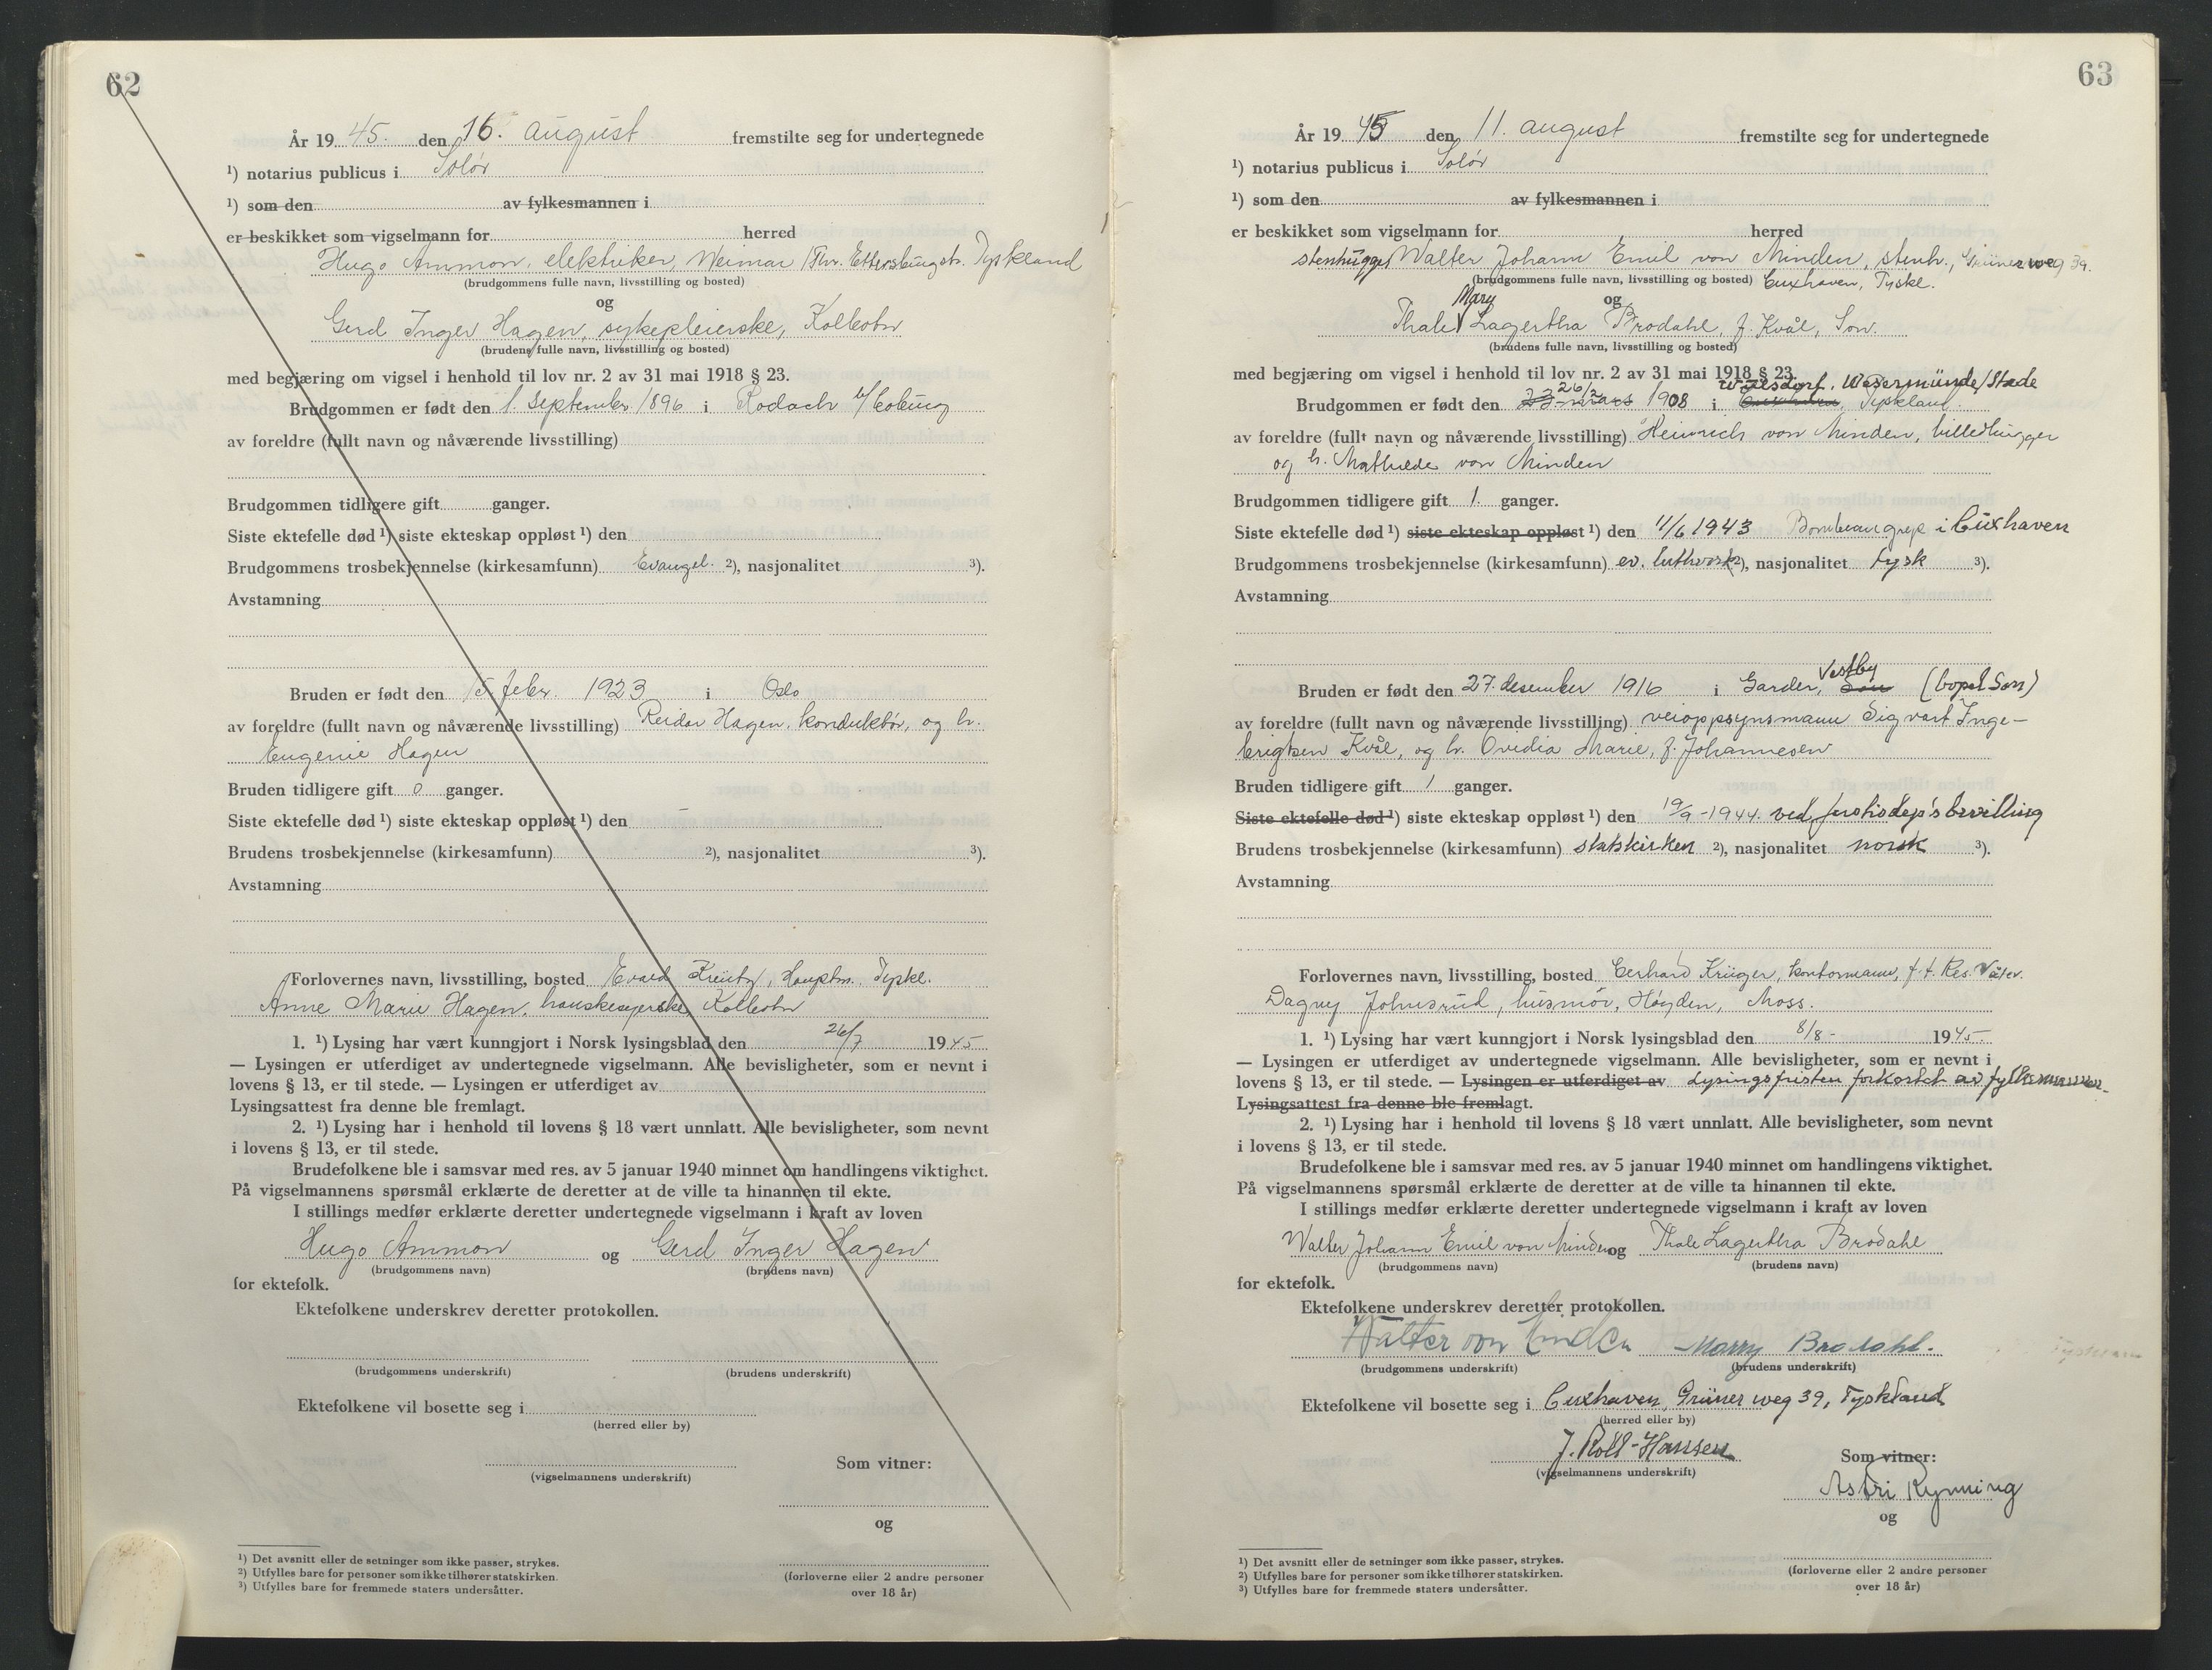 62
År 19 45. den 16. august fremstilte seg for undertegnede
¹) notarius publicus i Solør
¹) som den av fylkesmannen i
er beskikket som vigselmann for herred
Hugo Ammon, elektriker, Weimar /Thr. Ettersburgstr. Tyskland
(brudgommens fulle navn, livsstilling og bosted)
og
Gerd Inger Hagen, sykepleierske, Kolbotn
(brudens fulle navn, livsstilling og bosted)
med begjæring om vigsel i henhold til lov nr. 2 av 31 mai 1918 § 23.
Brudgommen er født den 1. september 1896 i Rodach b/Coburg
av foreldre (fullt navn og nåværende livsstilling)
Brudgommen tidligere gift ganger.
Siste ektefelle død ¹) siste ekteskap oppløst ¹) den
Brudgommens trosbekjennelse (kirkesamfunn) Evangel. ²), nasjonalitet ³).
Avstamning
Bruden er født den 15. febr. 1923 i Oslo
av foreldre (fullt navn og nåværende livsstilling) Reidar Hagen, konduktør, og h.
Eugenie Hagen
Bruden tidligere gift 0 ganger.
Siste ektefelle død ¹) siste ekteskap oppløst ¹) den
Brudens trosbekjennelse (kirkesamfunn) ²), nasjonalitet ³).
Avstamning
Forlovernes navn, livsstilling, bosted Kreutz, Hauptm., Tyskl.
Anne Marie Hagen, hanskesyerske Kolbotn
1. ¹) Lysing har vært kunngjort i Norsk lysingsblad den 26/7 19 45
— Lysingen er utferdiget av undertegnede vigselmann. Alle bevisligheter, som er nevnt i
lovens § 13, er til stede. — Lysingen er utferdiget av
Lysingsattest fra denne ble fremlagt.
2. ¹) Lysing har i henhold til lovens § 18 vært unnlatt. Alle bevisligheter, som nevnt
i lovens § 13, er til stede.
Brudefolkene ble i samsvar med res. av 5 januar 1940 minnet om handlingens viktighet.
På vigselmannens spørsmål erklærte de deretter at de ville ta hinannen til ekte.
I stillings medfør erklærte deretter undertegnede vigselmann i kraft av loven
Hugo Ammon og Gerd Inger Hagen
(brudgommens navn) (brudens navn)
for ektefolk.
Ektefolkene underskrev deretter protokollen.
(brudgommens underskrift) (brudens underskrift)
Ektefolkene vil bosette seg i
(herred eller by)
(vigselmannens underskrift)
Som vitner:
og
(forloverne eller 2 andre personer
over 18 år)
¹) Det avsnitt eller de setninger som ikke passer, strykes.
²) Utfylles bare for personer som ikke tilhører statskirken.
³) Utfylles bare for fremmede staters undersåtter.
63
År 19 45 den 11. august fremstilte seg for undertegnede
¹) notarius publicus i Solør
¹) som den av fylkesmannen i
er beskikket som vigselmann for herred
stenhugger Walter Johann Emil von Minden, stenh., Grünerweg 39.
(brudgommens fulle navn, livsstilling og bosted) Cuxhaven, Tyskl.
Mary og
Thale Lagertha Brodahl, f. Kvål, Son.
(brudens fulle navn, livsstilling og bosted)
med begjæring om vigsel i henhold til lov nr. 2 av 31 mai 1918 § 23.
Wulsdorf, Wesermünde/Stade
Brudgommen er født den 23. mars 26/2 1908 i Cuxhaven, Tyskland.
av foreldre (fullt navn og nåværende livsstilling) Heinrich von Minden, billedhugger
og h. Mathilde von Minden
Brudgommen tidligere gift 1. ganger.
Siste ektefelle død ¹) siste ekteskap oppløst ¹) den 11/6 1943 Bombeangrep i Cuxhaven
Brudgommens trosbekjennelse (kirkesamfunn) ev. luthersk ²), nasjonalitet tysk ³).
Avstamning
Vestby
Bruden er født den 27. desember 1916 i Garder, Son (bopel Son)
av foreldre (fullt navn og nåværende livsstilling) veioppsynsmann Sigvart Inge-
brigtsen Kvål, og h. Ovidia Marie, f. Johannesen
Bruden tidligere gift 1 ganger.
Siste ektefelle død ¹) siste ekteskap oppløst ¹) den 19/9 - 1944. ved justisdep's bevilling
Brudens trosbekjennelse (kirkesamfunn) statskirken ²), nasjonalitet norsk ³).
Avstamning
Forlovernes navn, livsstilling, bosted Gerhard Krüger, kontormann, f.t. Res. Våler.
Dagny Johnsrud, husmor, Høyden, Moss.
1. ¹) Lysing har vært kunngjort i Norsk lysingsblad den 8/8 - 19 45.
— Lysingen er utferdiget av undertegnede vigselmann. Alle bevisligheter, som er nevnt i
lovens § 13, er til stede. — Lysingen er utferdiget av Lysingsfristen forkortet av fylkesmannen.
Lysingsattest fra denne ble fremlagt.
2. ¹) Lysing har i henhold til lovens § 18 vært unnlatt. Alle bevisligheter, som nevnt
i lovens § 13, er til stede.
Brudefolkene ble i samsvar med res. av 5 januar 1940 minnet om handlingens viktighet.
På vigselmannens spørsmål erklærte de deretter at de ville ta hinannen til ekte.
I stillings medfør erklærte deretter undertegnede vigselmann i kraft av loven
Walter Johann Emil von Minden og Thale Lagertha Brodahl
(brudgommens navn) (brudens navn)
for ektefolk.
Ektefolkene underskrev deretter protokollen.
Walter von Minden Marry Brodahl.
(brudgommens underskrift) (brudens underskrift)
Ektefolkene vil bosette seg i Cuxhaven, Grüner weg 39, Tyskland
(herred eller by)
J. Roll-Hansen
(vigselmannens underskrift)
Som vitner:
Astri Rynning
og
(forloverne eller 2 andre personer
over 18 år)
¹) Det avsnitt eller de setninger som ikke passer, strykes.
²) Utfylles bare for personer som ikke tilhører statskirken.
³) Utfylles bare for fremmede staters undersåtter.